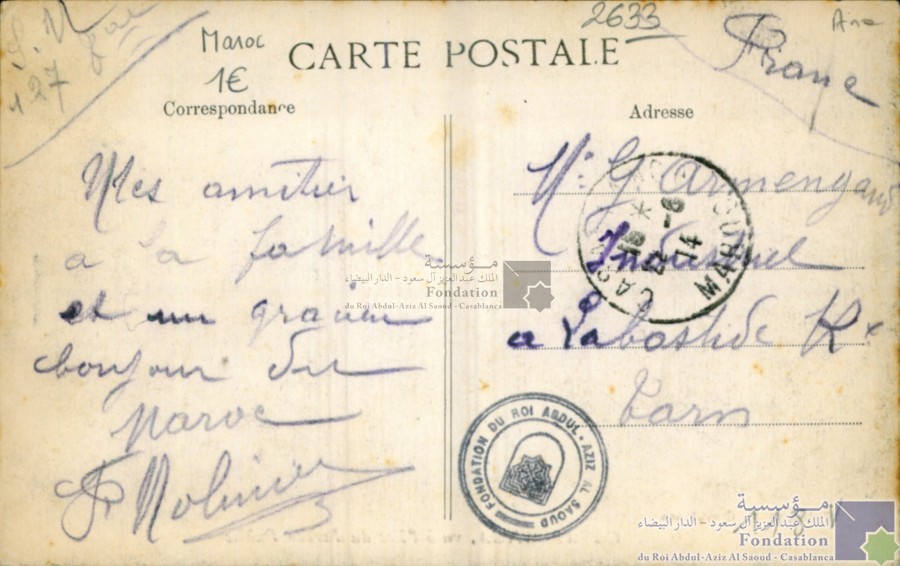 2633
Maroc
1€
127
CARTE POSTALE
France
Correspondance
Adresse
Mes amitier
a la famille
et un gracieu
bonjour du
Maroc
Molinier
Mr G Armengaud
Industriel
a Labastide Rx
Tarn
CAS
MAROC
18 -6
14
FONDATION DU ROI ABDUL-AZIZ AL SAOUD
مؤسسة
الملك عبد العزيز آل سعود - الدار البيضاء
Fondation
du Roi Abdul-Aziz Al Saoud - Casablanca
مؤسسة
الملك عبد العزيز آل سعود - الدار البيضاء
Fondation
du Roi Abdul-Aziz Al Saoud - Casablanca